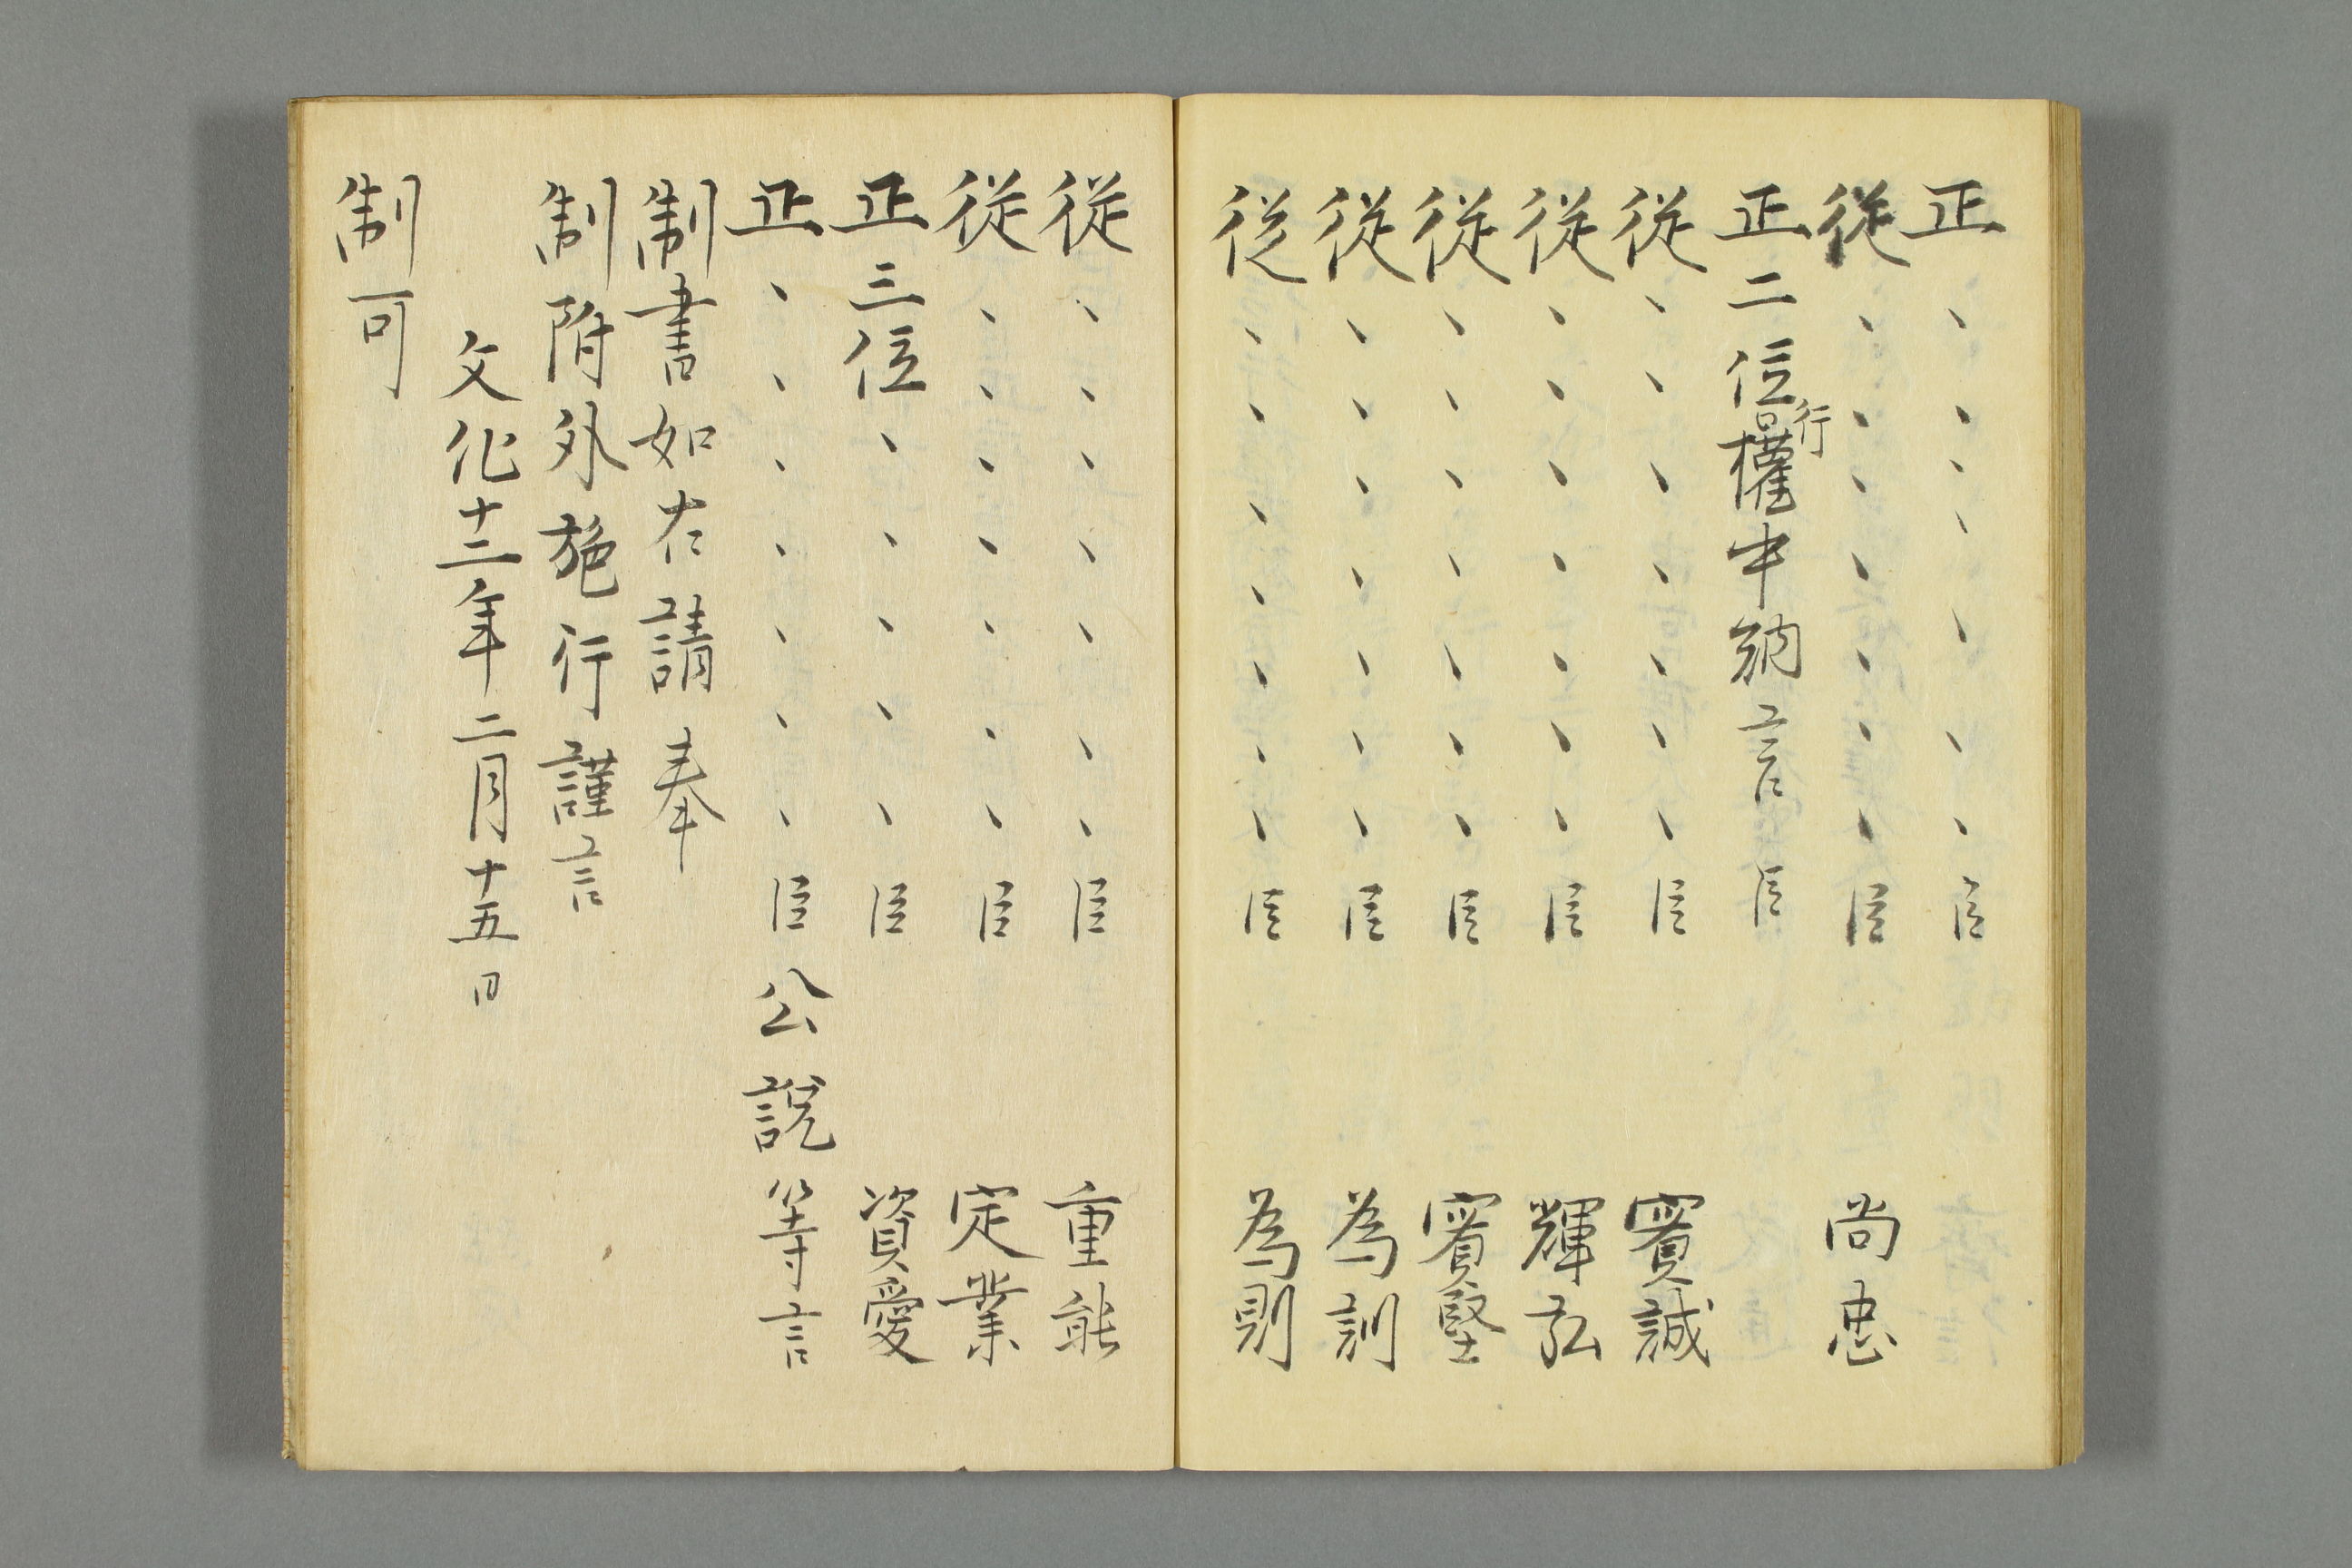 正、、、、、、、臣
従、、、、、、、臣 尚忠
正二位行權中納言臣
従、、、、、、、臣 實誠
従、、、、、、、臣 輝弘
従、、、、、、、臣 實堅
従、、、、、、、臣 為訓
従、、、、、、、臣 為則
従、、、、、、、臣 重能
従、、、、、、、臣 定業
正三位、、、、、臣 資愛
正、、、、、、、臣公説等言
制書如右請奉
制附外施行謹言
文化十二年二月十五日
制可